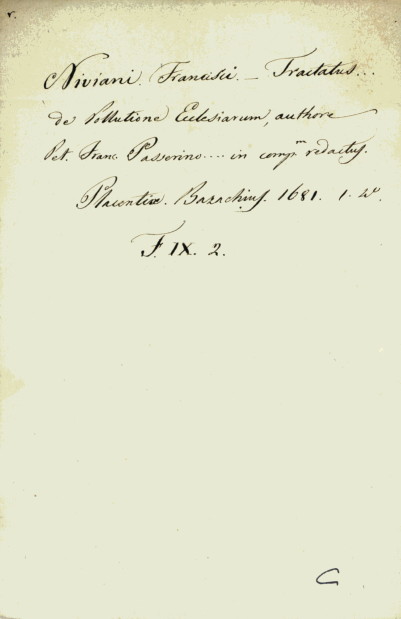 Niviani. Francisci. — Tractatus...
de Pollutione Ecclesiarum, authore
Pet. Franc. Passerino.... in comp.m redactus.
Placentiæ. Bazachius. 1681. 1.
F. IX. 2.
C